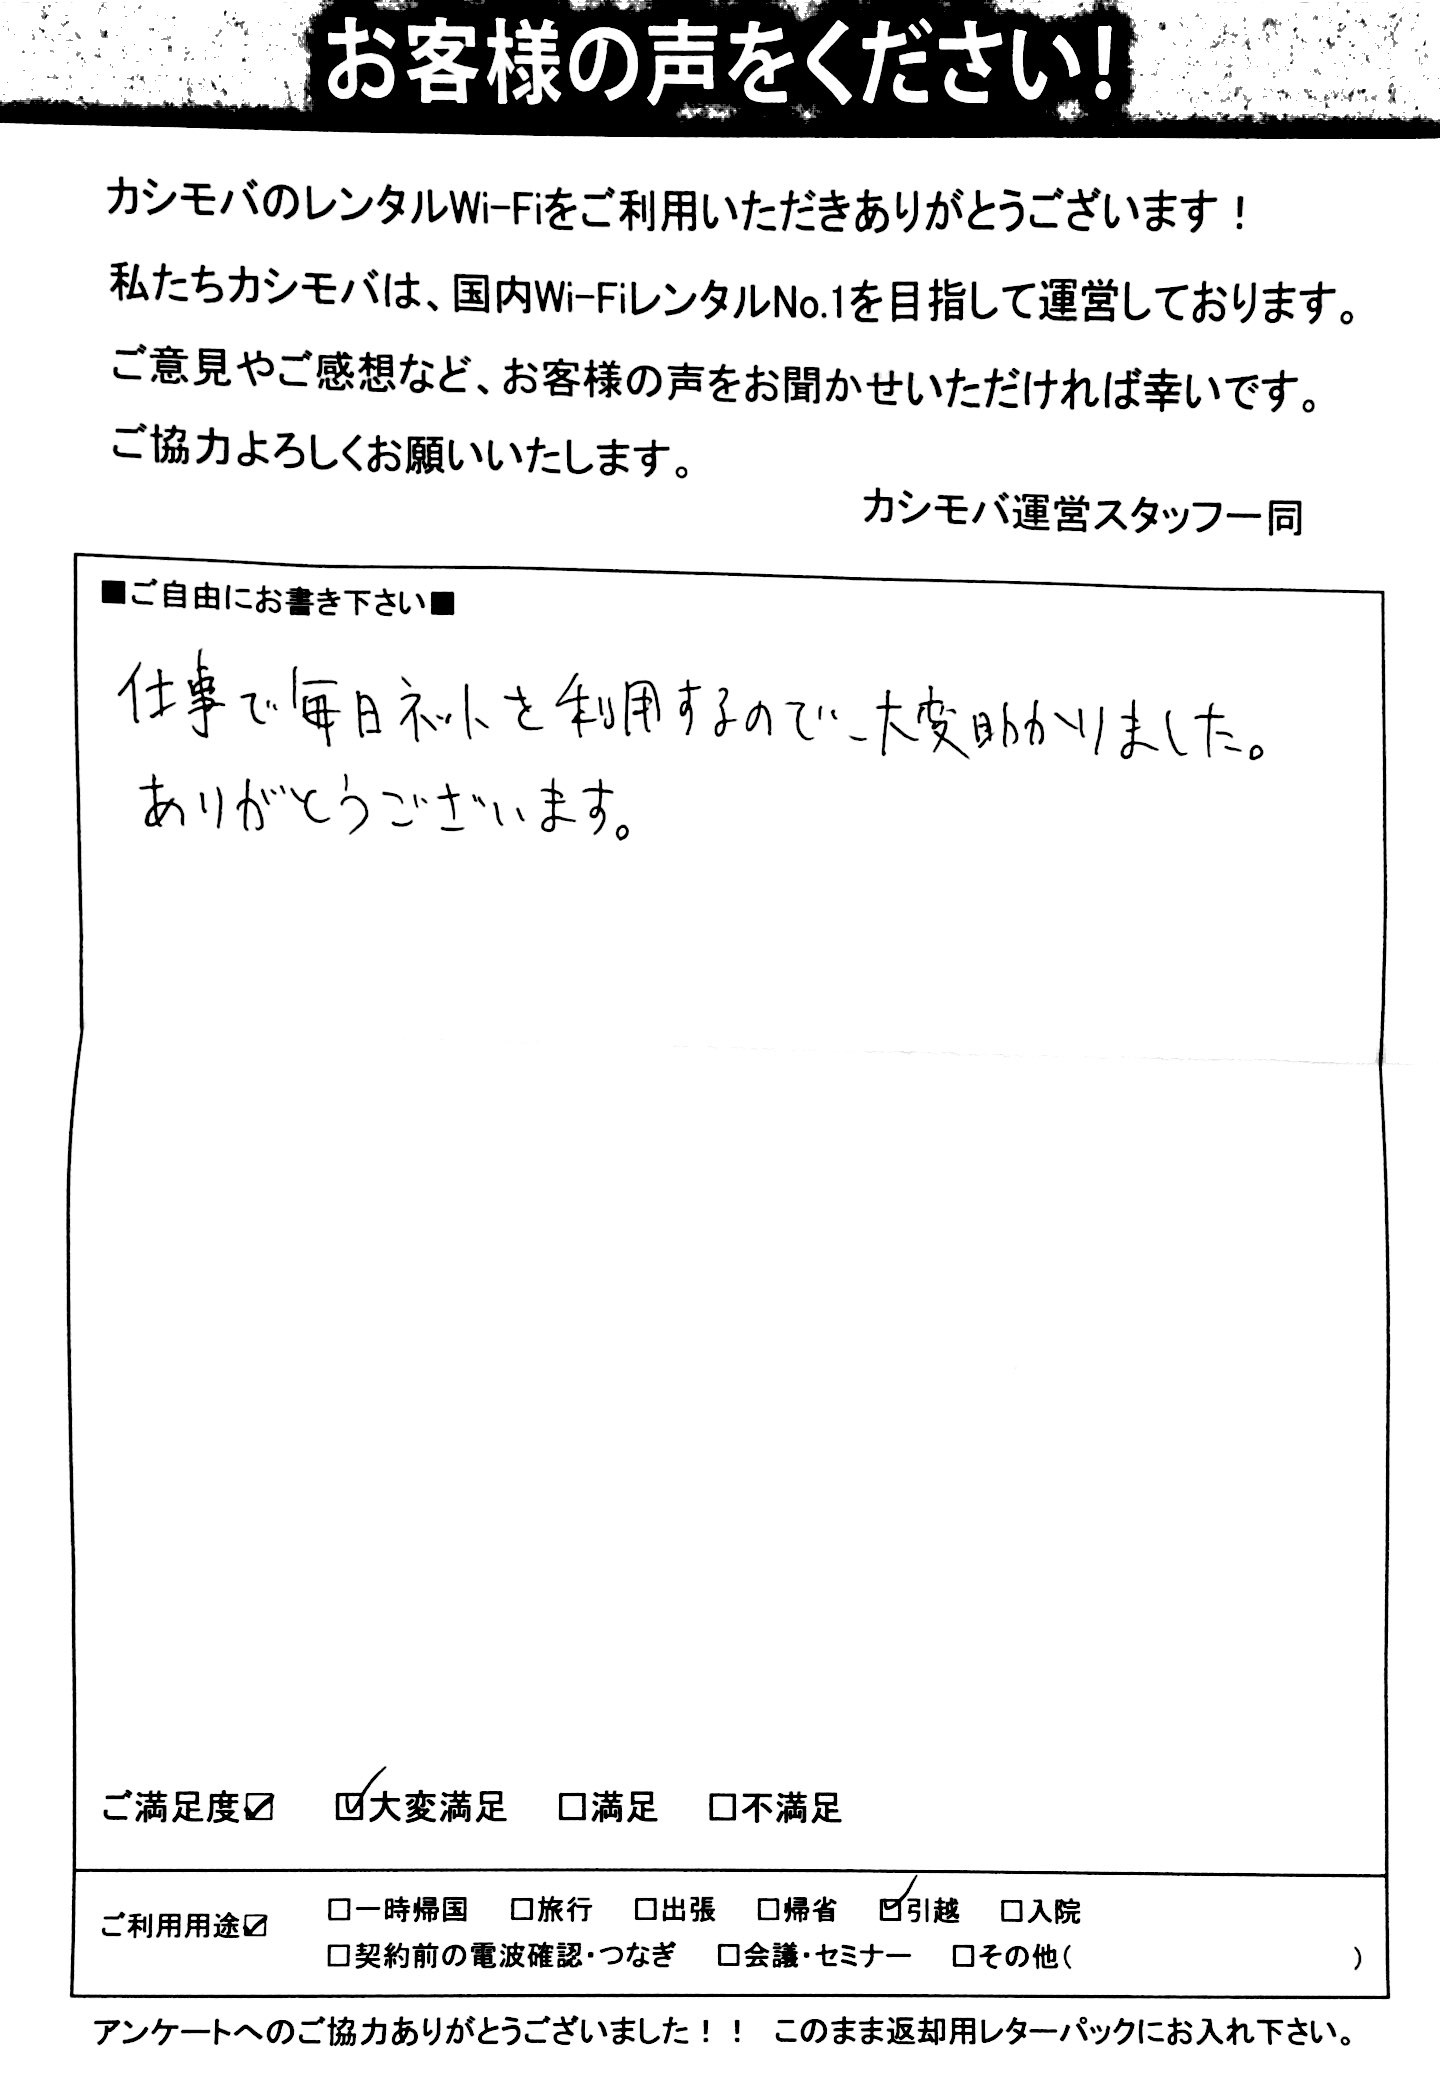 お客様の声をください!
カシモバのレンタルWi-Fiをご利用いただきありがとうございます！
私たちカシモバは、国内Wi-FiレンタルNo.1を目指して運営しております。
ご意見やご感想など、お客様の声をお聞かせいただければ幸いです。
ご協力よろしくお願いいたします。
カシモバ運営スタッフ一同
■ご自由にお書き下さい■
仕事で毎日ネットを利用するので、大変助かりました。
ありがとうございます。
ご満足度☑ ☑大変満足 □満足 □不満足
ご利用用途☑ □一時帰国 □旅行 □出張 □帰省 ☑引越 □入院
□契約前の電波確認・つなぎ □会議・セミナー □その他( )
アンケートへのご協力ありがとうございました！！ このまま返却用レターパックにお入れ下さい。